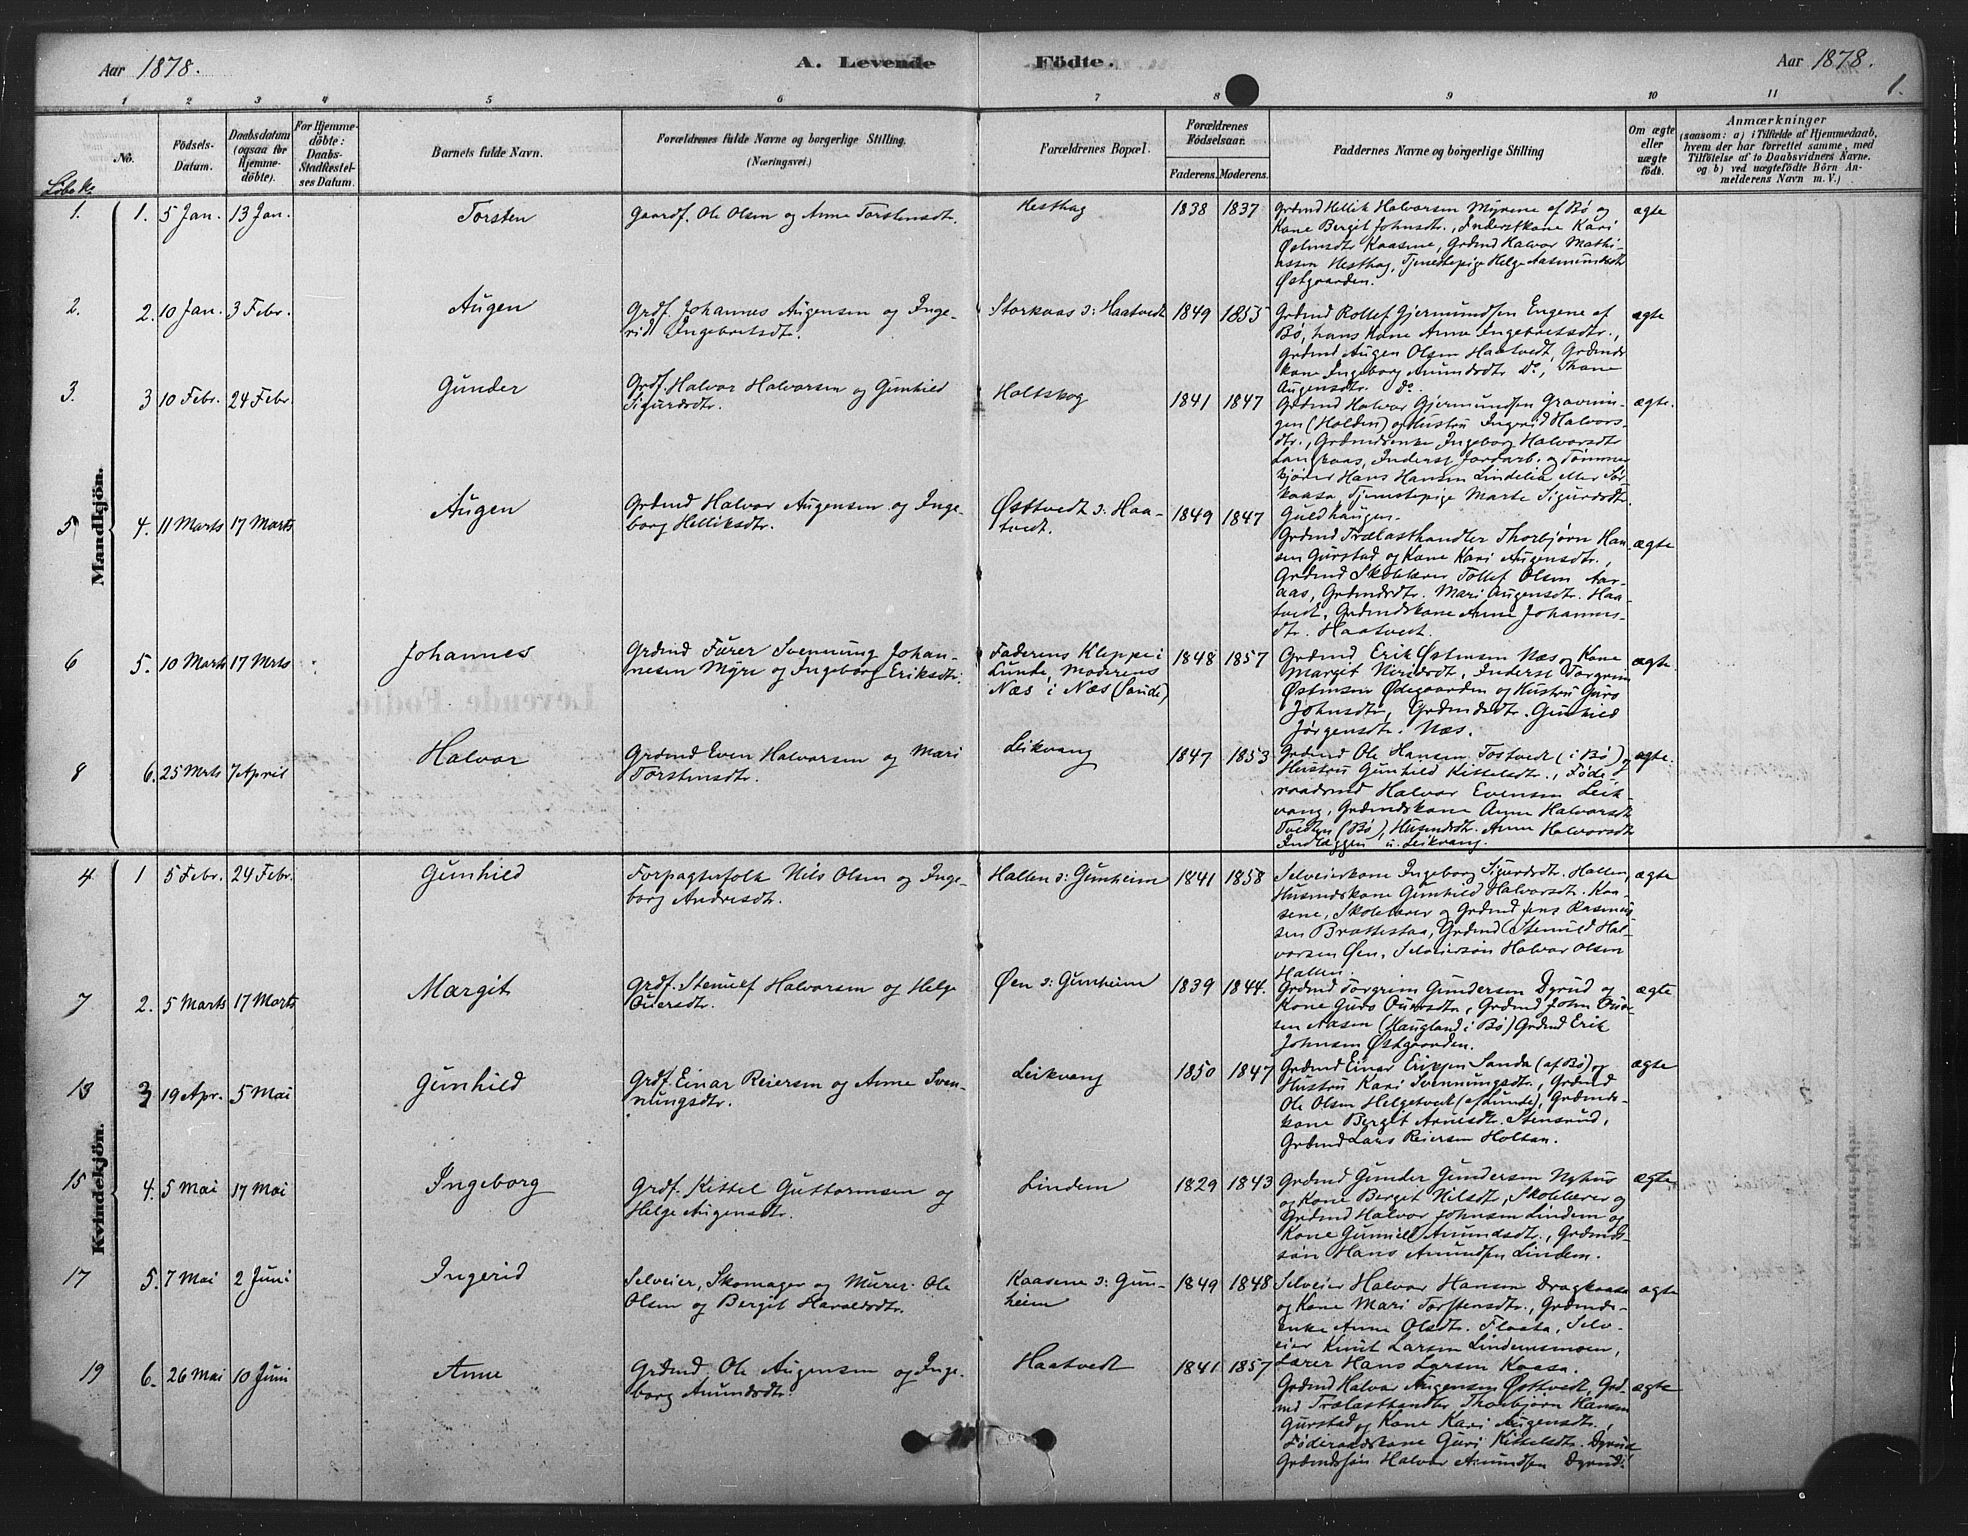 Aar 1878.
A. Levende Födte.
Aar 1878.
1.
1 2 3 4 5 6 7 8 9 10 11
Löbe No.
No.
Födsels-
Datum.
Daabsdatum
(ogsaa for
Hjemme-
döbte).
For Hjemme-
döbte:
Daabs-
Stadfæstel-
ses Datum.
Barnets fulde Navn.
Forældrenes fulde Navne og borgerlige Stilling.
(Næringsvei.)
Forældrenes Bopæl.
Forældrenes
Födselsaar.
Faderens. Moderens.
Faddernes Navne og borgerlige Stilling
Om ægte
eller
uægte
födt.
Anmærkninger
(saasom: a) i Tilfælde af Hjemmedaab,
hvem der har forrettet samme, med
Tilföielse af to Daabsvidners Navne.
og b) ved uægtefödte Börn An-
melderens Navn m. V.)
Mandkjön.
1. 1. 5 Jan. 13 Jan. Torsten
Gaardf. Ole Olsen og Anne Torstensdt.
Hesthag 1838 1837
Grdmd Hellik Halvorsen Myrene af Bø og
Kone Bergit Johnsdtr., Inderstkone Kari
Kaasene, Grdmd Halvor Mathi-
assen Hesthag, Tjenestepige Helge Aasmundsdt
Østgaarden.
ægte
2. 2. 10 Jan. 3 Febr. Augen
Grdf. Johannes Augensen og Inge-
rid Ingebretsdt.
Storkaas s: Haatvedt 1849 1853
Grdmd Rollef Gjermundsen Engene af
Bø, hans Kone Anne Ingebretsdtr.,
Grdmd Augen Olsen Haatvedt, Grdmds
kone Ingeborg Amundsdtr do, Thone
Augensdtr. do.
ægte
3. 3 10 Febr. 24 Febr. Gunder
Grdf. Halvor Halvorsen og Gunhild
Sigurdsdtr.
Holtskog 1841 1847
Grdmd Halvor Gjermundsen Gravnin-
gen (Holden) og Hustru Ingerid Halvors-
dtr., Grdmdsenke Ingeborg Halvorsdtr
Langkaas, Inderst Jordarb. og Tømmer
kjører Hans Hansen Lindelia eller Sør-
kaasa, Tjenestepige Marte Sigurdsdtr
Guldhaugen.
ægte.
5 4. 11 Marts 17 Marts Augen
Grdmd Halvor Augensen og Inge-
borg Helliksdtr.
Østtvedt s: Haa-
tvedt. 1849 1847
Grdmd Trælasthandler Thorbjørn Han-
sen Gurstad og Kone Kari Augensdtr.,
Grdmd Skolelærer Tollef Olsen Aar-
aas, Grdmdsdtr. Mari Augensdtr. Haa-
tvedt, Grdmdskone Anne Johannes-
dtr. Haatvedt.
ægte
6 5. 10 Marts 17 Mrts Johannes
Grdmd Furer Svennung Johan-
nesen Myre og Ingeborg Eriksdtr.
Faderens Kleppe i
Lunde, Moderens
Næs i Næs (Saude) 1848 1857
Grdmd Erik Østensen Næs og Kone
Margit Nirisdtr, Inderst Torgrim
Østensen Ødegaarden og Hustru Guro
Johnsdtr, Grdmdsdtr. Gunhild
Jørgensdtr. Næs.
ægte.
8 6. 25 Mrts 7 April Halvor
Grdmd Even Halvorsen og Mari
Torstensdtr.
Leikvang 1847 1853
Grdmd Ole Hansen Tostvedt (i Bø) og
Hustru Gunhild Kittelsdtr., Føde-
raadsmd Halvor Evensen Leik-
vang, Grdmdskone Anne Halvorsdt
Tvedten (Bø), Husmdsdtr. Anne Halvorsdt
Indlæggen u. Leikvang.
ægte.
Kvindekjön.
4. 1 5 Febr. 24 Febr. Gunhild
Forpagterfolk Nils Olsen og Inge-
borg Andresdt.
Hallen s: Gunheim 1841 1858
Selveierkone Ingeborg Sigurdsdt. Hallen,
Husmdskone Gunhild Halvorsdt. Kaa-
sene, Skolelærer og Grdmd Jens Rasmus-
sen Brattestaa, Grdmd Stenulf Hal-
vorsen Øen, Selveiersøn Halvor Olsen
Hallen.
ægte
7 2. 5 Marts 17 Marts Margit
Grdf. Stenulf Halvorsen og Helge
Øen s: Gunheim 1839 1844.
Grdmd Torgrim Gundersen Dyrud og
Kone Guro , Grdmd John
sen Aasen (Haugland i Bø) Grdmd Erik
Johnsen Østgaarden.
ægte
13 3 19 Apr. 5 Mai Gunhild
Grdf. Einar Reiersen og Anne Sven-
nungsdtr.
Leikvang 1850 1847
Grdmd Einar Eriksen Sanda (af Bø) og
Hustru Kari Svennungsdtr., Grdmd
Ole Olsen Helgetvedt (af Lunde), Grdmds-
kone Bergit Arnesdtr. Stensrud,
Grdmd Lars Reiersen Holtan.
ægte
15 4. 5 Mai 17 Mai Ingeborg
Grdf. Kittel Guttormsen og
Helge Augensdtr.
Lindem 1829 1843
Grdmd Gunder Gundersen Nyhus
og Kone Berget Nilsdtr, Skolelærer og
Grdmd Halvor Johnsen Lindem og
Kone Gunnild Amundsdtr., Grdmds-
søn Hans Amundsen Lindem.
ægte
17 5. 7 Mai 2 Juni Ingerid
Selveier, Skomager og Murer Ole
Olsen og Bergit Haraldsdtr.
Kaasene s: Gun-
heim 1849 1848
Selveier Halvor Hansen Dragkaasa
og Kone Mari Torstensdtr., Grdmds-
enke Anne Olsdtr. Flaata, Selv-
eier Knut Larsen Lindemsmoen,
Lærer Hans Larsen Kaasa.
ægte
19 6. 26 Mai 10 Juni Anne
Grdmd Ole Augensen og Inge-
borg Amundsdtr.
Haatvedt 1841 1857
Grdmd Halvor Augensen Østtvedt, Grd-
md Trælasthandler Thorbjørn Hansen
Gurstad og Kone Kari Augensdtr.,
Føderaadskone Guri Kittelsdtr. Dyrud
Grdmdssøn Halvor Amundsen Dyrud.
ægte